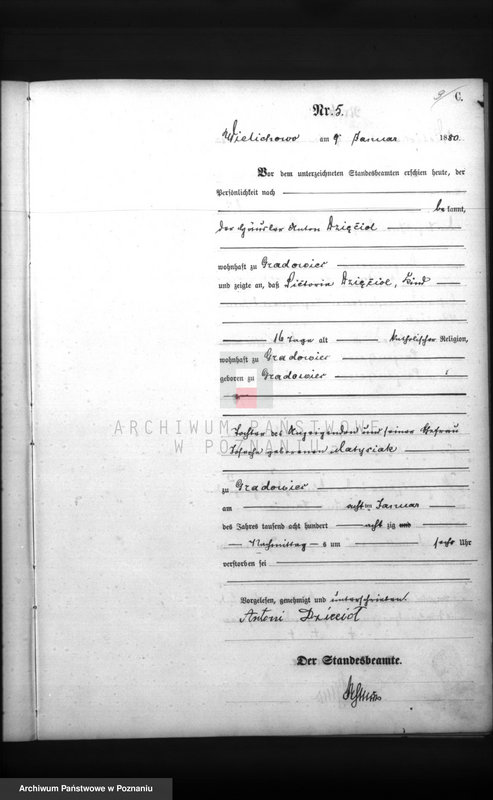 C.
Nr. 5.
Wielichowo am 9 Januar 1880.
Vor dem unterzeichneten Standesbeamten erschien heute, der
Persönlichkeit nach
bekannt,
der Häusler Anton Dzięciol
wohnhaft zu Gradowiec
und zeigte an, daß Victoria Dzięciol, Kind
16 Tage alt Katholischer Religion,
wohnhaft zu Gradowiec
geboren zu Gradowiec
Tochter des Anzeigenden und seiner Ehefrau
Josepha geborenen Matysiak
ARCHIWUM PAŃSTWOWE
W POZNANIU
zu Gradowiec
am achten Januar
des Jahres tausend acht hundert achtzig und
Nachmittags um sechs Uhr
verstorben sei
Vorgelesen, genehmigt und unterschrieben.
Antoni Dzięcioł
Der Standesbeamte.
Archiwum Państwowe w Poznaniu